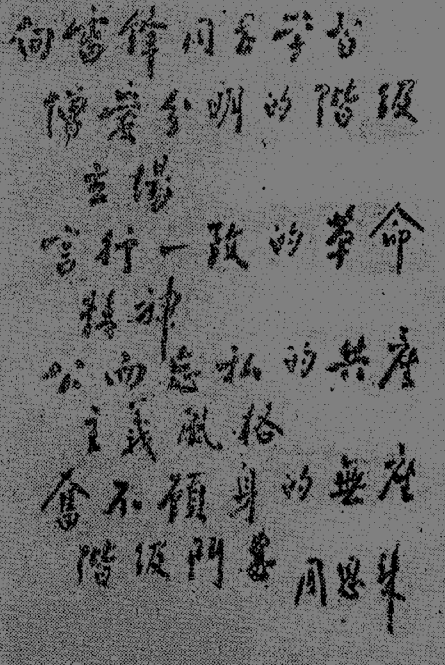 向雷锋同志学习
憎爱分明的階级
立場
言行一致的革命
精神
公而忘私的共産
主義風格
奮不顧身的無産
階级鬥志
周恩来